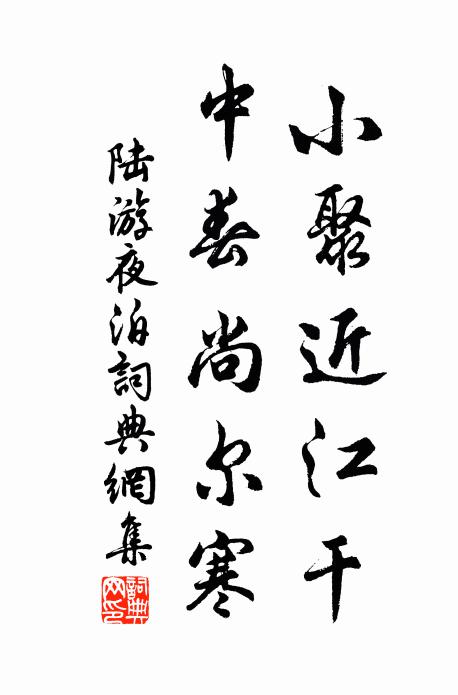 小聚近江干
中春尚尔寒
陆游夜泊詞典網集
詞典網印